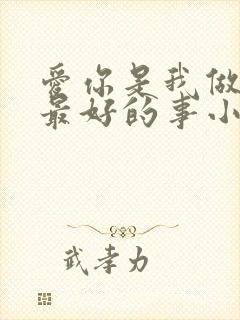 爱你是我做
最好的事小
武孝力